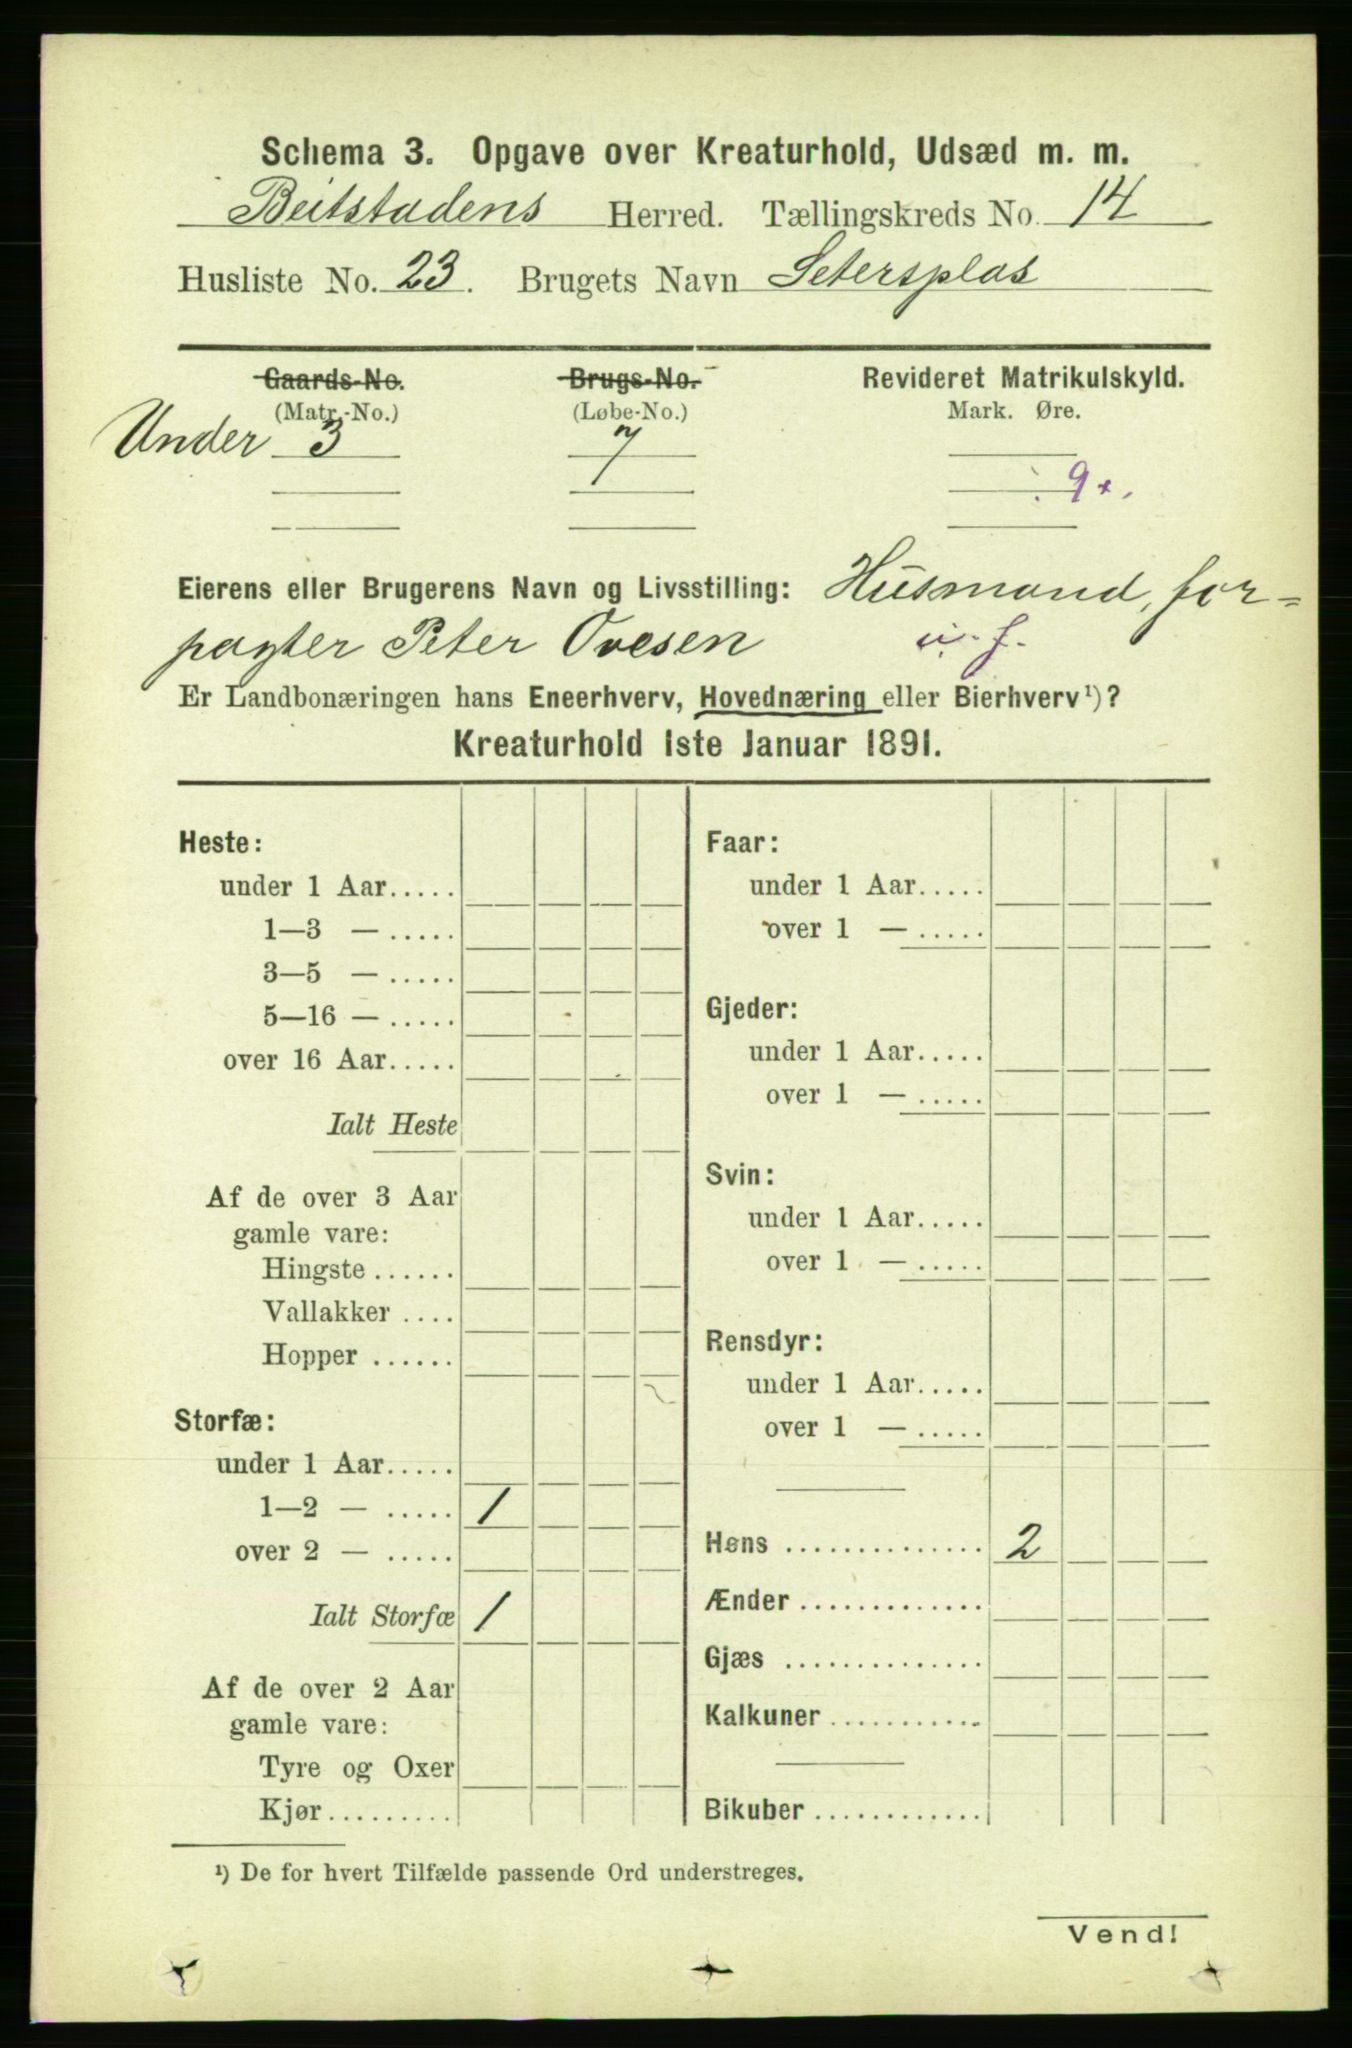 Schema 3. Opgave over Kreaturhold, Udsæd m. m.
Beitstadens Herred. Tællingskreds No. 14
Husliste No. 23. Brugets Navn Setersplas
Gaards-No. Brugs-No. Revideret Matrikulskyld.
(Matr.-No.) (Løbe-No.) Mark. Øre.
Under 3 7
9+.
Eierens eller Brugerens Navn og Livsstilling: Husmand, for=
pagter Peter Ovesen u. f.
Er Landbonæringen hans Eneerhverv, Hovednæring eller Bierhverv¹)?
Kreaturhold 1ste Januar 1891.
Heste:
under 1 Aar.....
1—3 — .....
3—5 — .....
5—16 — .....
over 16 Aar.....
Ialt Heste
Af de over 3 Aar
gamle vare:
Hingste ......
Vallakker ....
Hopper ......
Storfæ:
under 1 Aar.....
1—2 — ..... 1
over 2 — .....
Ialt Storfæ 1
Af de over 2 Aar
gamle vare:
Tyre og Oxer
Kjør.........
Faar:
under 1 Aar.....
over 1 — .....
Gjeder:
under 1 Aar.....
over 1 — .....
Svin:
under 1 Aar.....
over 1 — .....
Rensdyr:
under 1 Aar.....
over 1 — .....
Høns .............. 2
Ænder .............
Gjæs ..............
Kalkuner ...........
Bikuber ............
¹) De for hvert Tilfælde passende Ord understreges.
Vend!